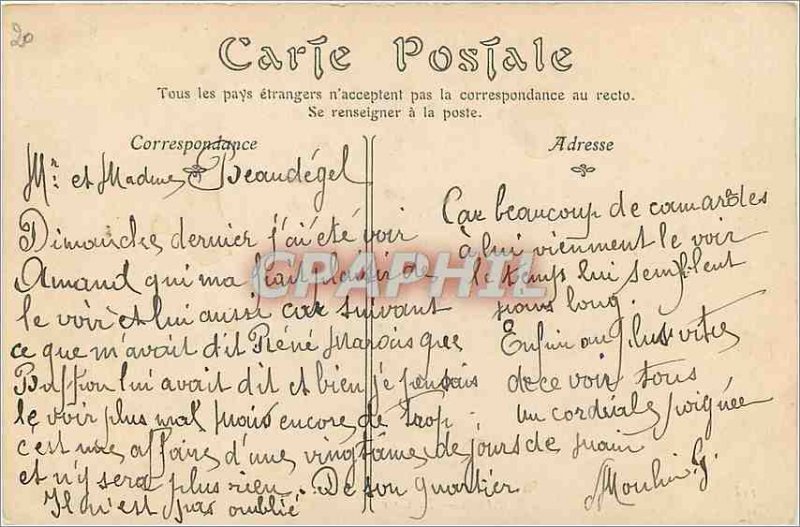 20
Carte Postale
Tous les pays étrangers n'acceptent pas la correspondance au recto.
Se renseigner à la poste.
Correspondance
Mr. et Madme Beaudégel
Dimanche dernier j'ai été voir
Amand qui ma fait plaisir de
le voir et lui aussi car suivant
ce que m'avait dit Réné Marois que
lui avait dit et bien je pensais
le voir plus mal mais encore de trop
c'est une affaire d'une vingtaine de jours de
et n'y sera plus rien. De son quartier
Il n'est pas oublié
Adresse
Car beaucoup de camarades
à lui viennent le voir
le temps lui semblent
moins long.
Enfin au plus vite
de ce voir tous
un cordiale poignée
de main
Moulin G.
CPAPHIL